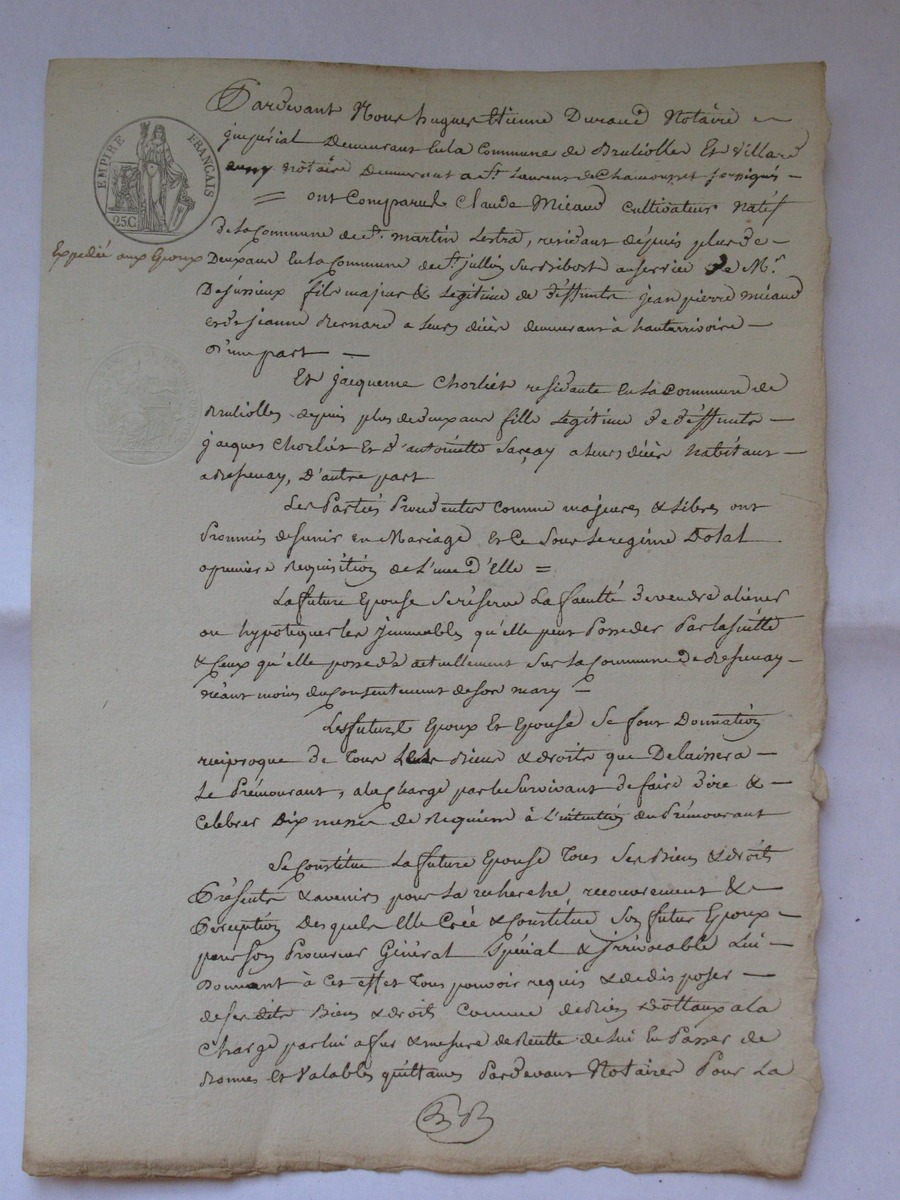 Pardevant Nous hugues Etienne Durand Notaire
jmpérial Demeurant En la Commune de Brulliolles Et Villard
aussy Notaire Demeurant a St. Laurent de Chamousset soussignés
EMPIRE FRANÇAIS
25C
= ont Comparu Claude Micaud Cultivateur Natif
De La Commune de St. martin Lestra, residant depuis plus de
Expediée aux Epoux
Deux ans En La Commune de St. jullin Sur Bibost au service De Mr.
Dejussieux fils majeur & Legitime de deffunts jean pierre micaud
et de jeanne Bernard a leurs décès demeurant à hauterivoire
D'une part
Et jacqueme Chorliet residante En La Commune de
Brulliolles depuis plus de deux ans fille Legitime de deffunts
jacques Chorliet Et D'antoinette Sarçay a leurs décès habitant
a Bessenay, D'autre part
Les Partiés Procedentes Comme majeures & Libres ont
Promis de s'unir en Mariage Et Ce Sous Le regime Dotal
a premiere Requisition de L'une d'Elle =
La future Epouse Se réserve La faculté de vendre aliéner
ou hypotequer les jmmeubles qu'elle peut Posseder Par la suitte
& Ceux qu'elle possede actuellement Sur La Commune de Bessenay
néant moins du Consentement de son mary
Les futurs Epoux Et Epouse Se font Donnation
reciproque de Tous Les Biens & droits que Delaissera
Le Prémourant, a la Charge par le Survivant de faire dire &
Celebrer Dix messes de Requiem à L'intention du Prémourant
Se Constitue La future Epouse Tous Ses Biens & droits
Présents & avenirs pour La recherche, recouvrement &
Perception Desquels Elle Crée & Constitue Son futur Epoux
pour son Procureur Général Spécial & jrrévocable Lui
Donnant à Cet effet Tous pouvoir requis & de disposer
de ses dits Biens & droits Comme de Biens dottaux a la
Charge par lui a fur & mesure de Recette de lui En Passer de
Bonnes et Valables quittances Pardevant Notaires Pour La